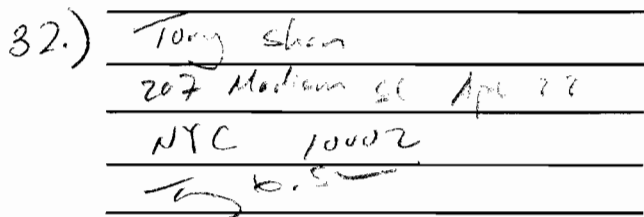 32.) Tony Shan
207 Madison St Apt 22
NYC 10002